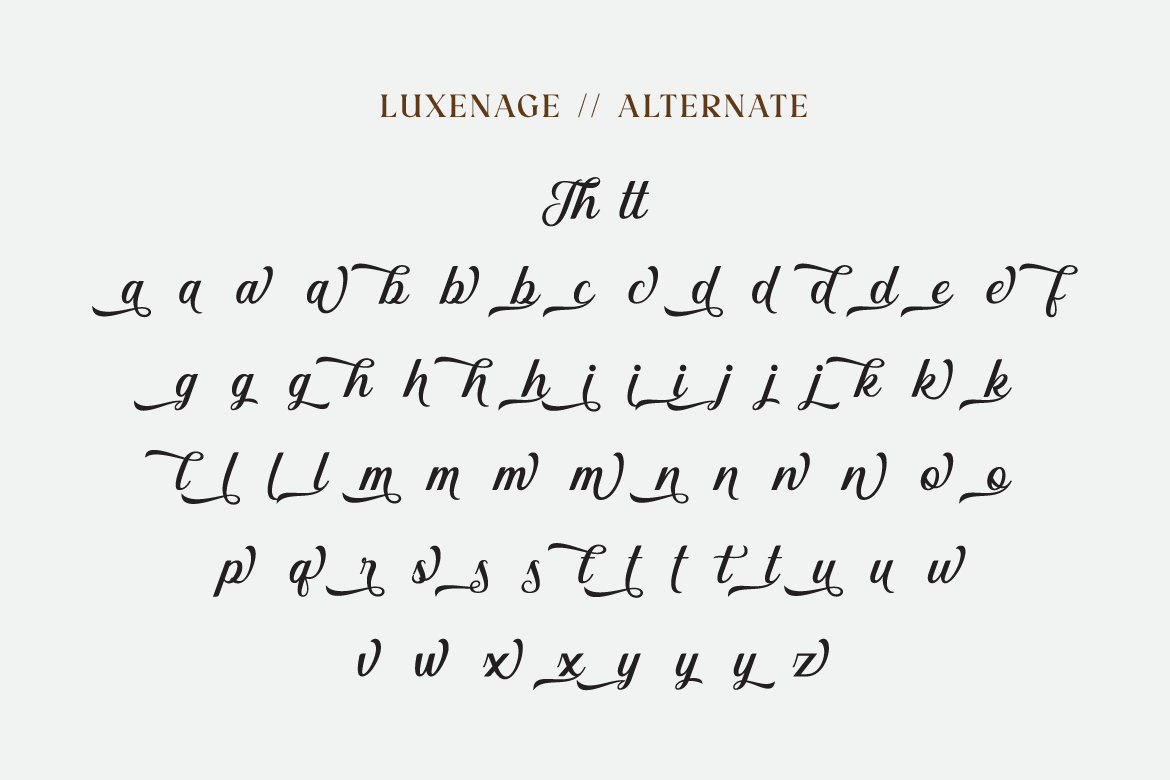 LUXENAGE // ALTERNATE
Th tt
a a a a b b b c c d d d d e e f
g g g h h h h i i i j j j k k k
l l l l m m m m n n n n o o
p q r s s s t t t t t u u w
v w x x y y y z